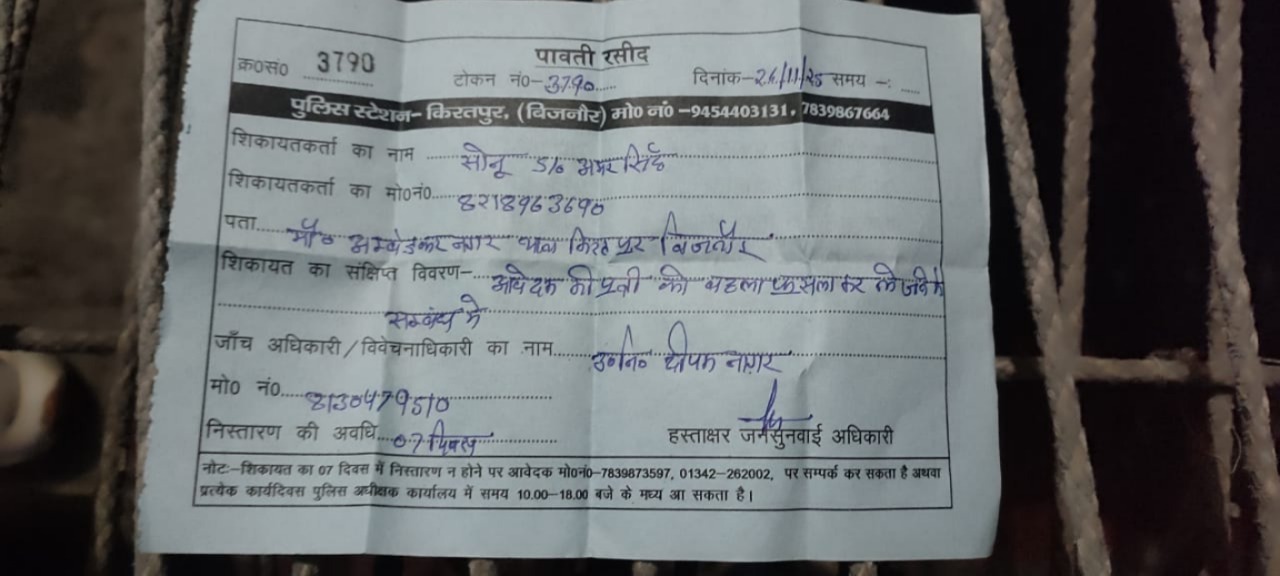 पावती रसीद
क्र०सं० 3790 टोकन नं०-3790 दिनांक-26/11/25 समय -:
पुलिस स्टेशन- किरतपुर, (बिजनौर) मो० नं० -9454403131, 7839867664
शिकायतकर्ता का नाम सोनू S/o अमर सिंह
शिकायतकर्ता का मो०नं० 8218963690
पता मौ० अम्बेडकर नगर थाना किरतपुर बिजनौर
शिकायत का संक्षिप्त विवरण- आवेदक की पुत्री को बहला फुसला कर ले जाने के
सम्बंध मे
जाँच अधिकारी/विवेचनाधिकारी का नाम उ०नि० दीपक नागर
मो० नं० 8130479510
निस्तारण की अवधि 07 दिवस हस्ताक्षर जनसुनवाई अधिकारी
नोटः-शिकायत का 07 दिवस में निस्तारण न होने पर आवेदक मो०नं०-7839873597, 01342-262002, पर सम्पर्क कर सकता है अथवा
प्रत्येक कार्यदिवस पुलिस अधीक्षक कार्यालय में समय 10.00-18.00 बजे के मध्य आ सकता है।